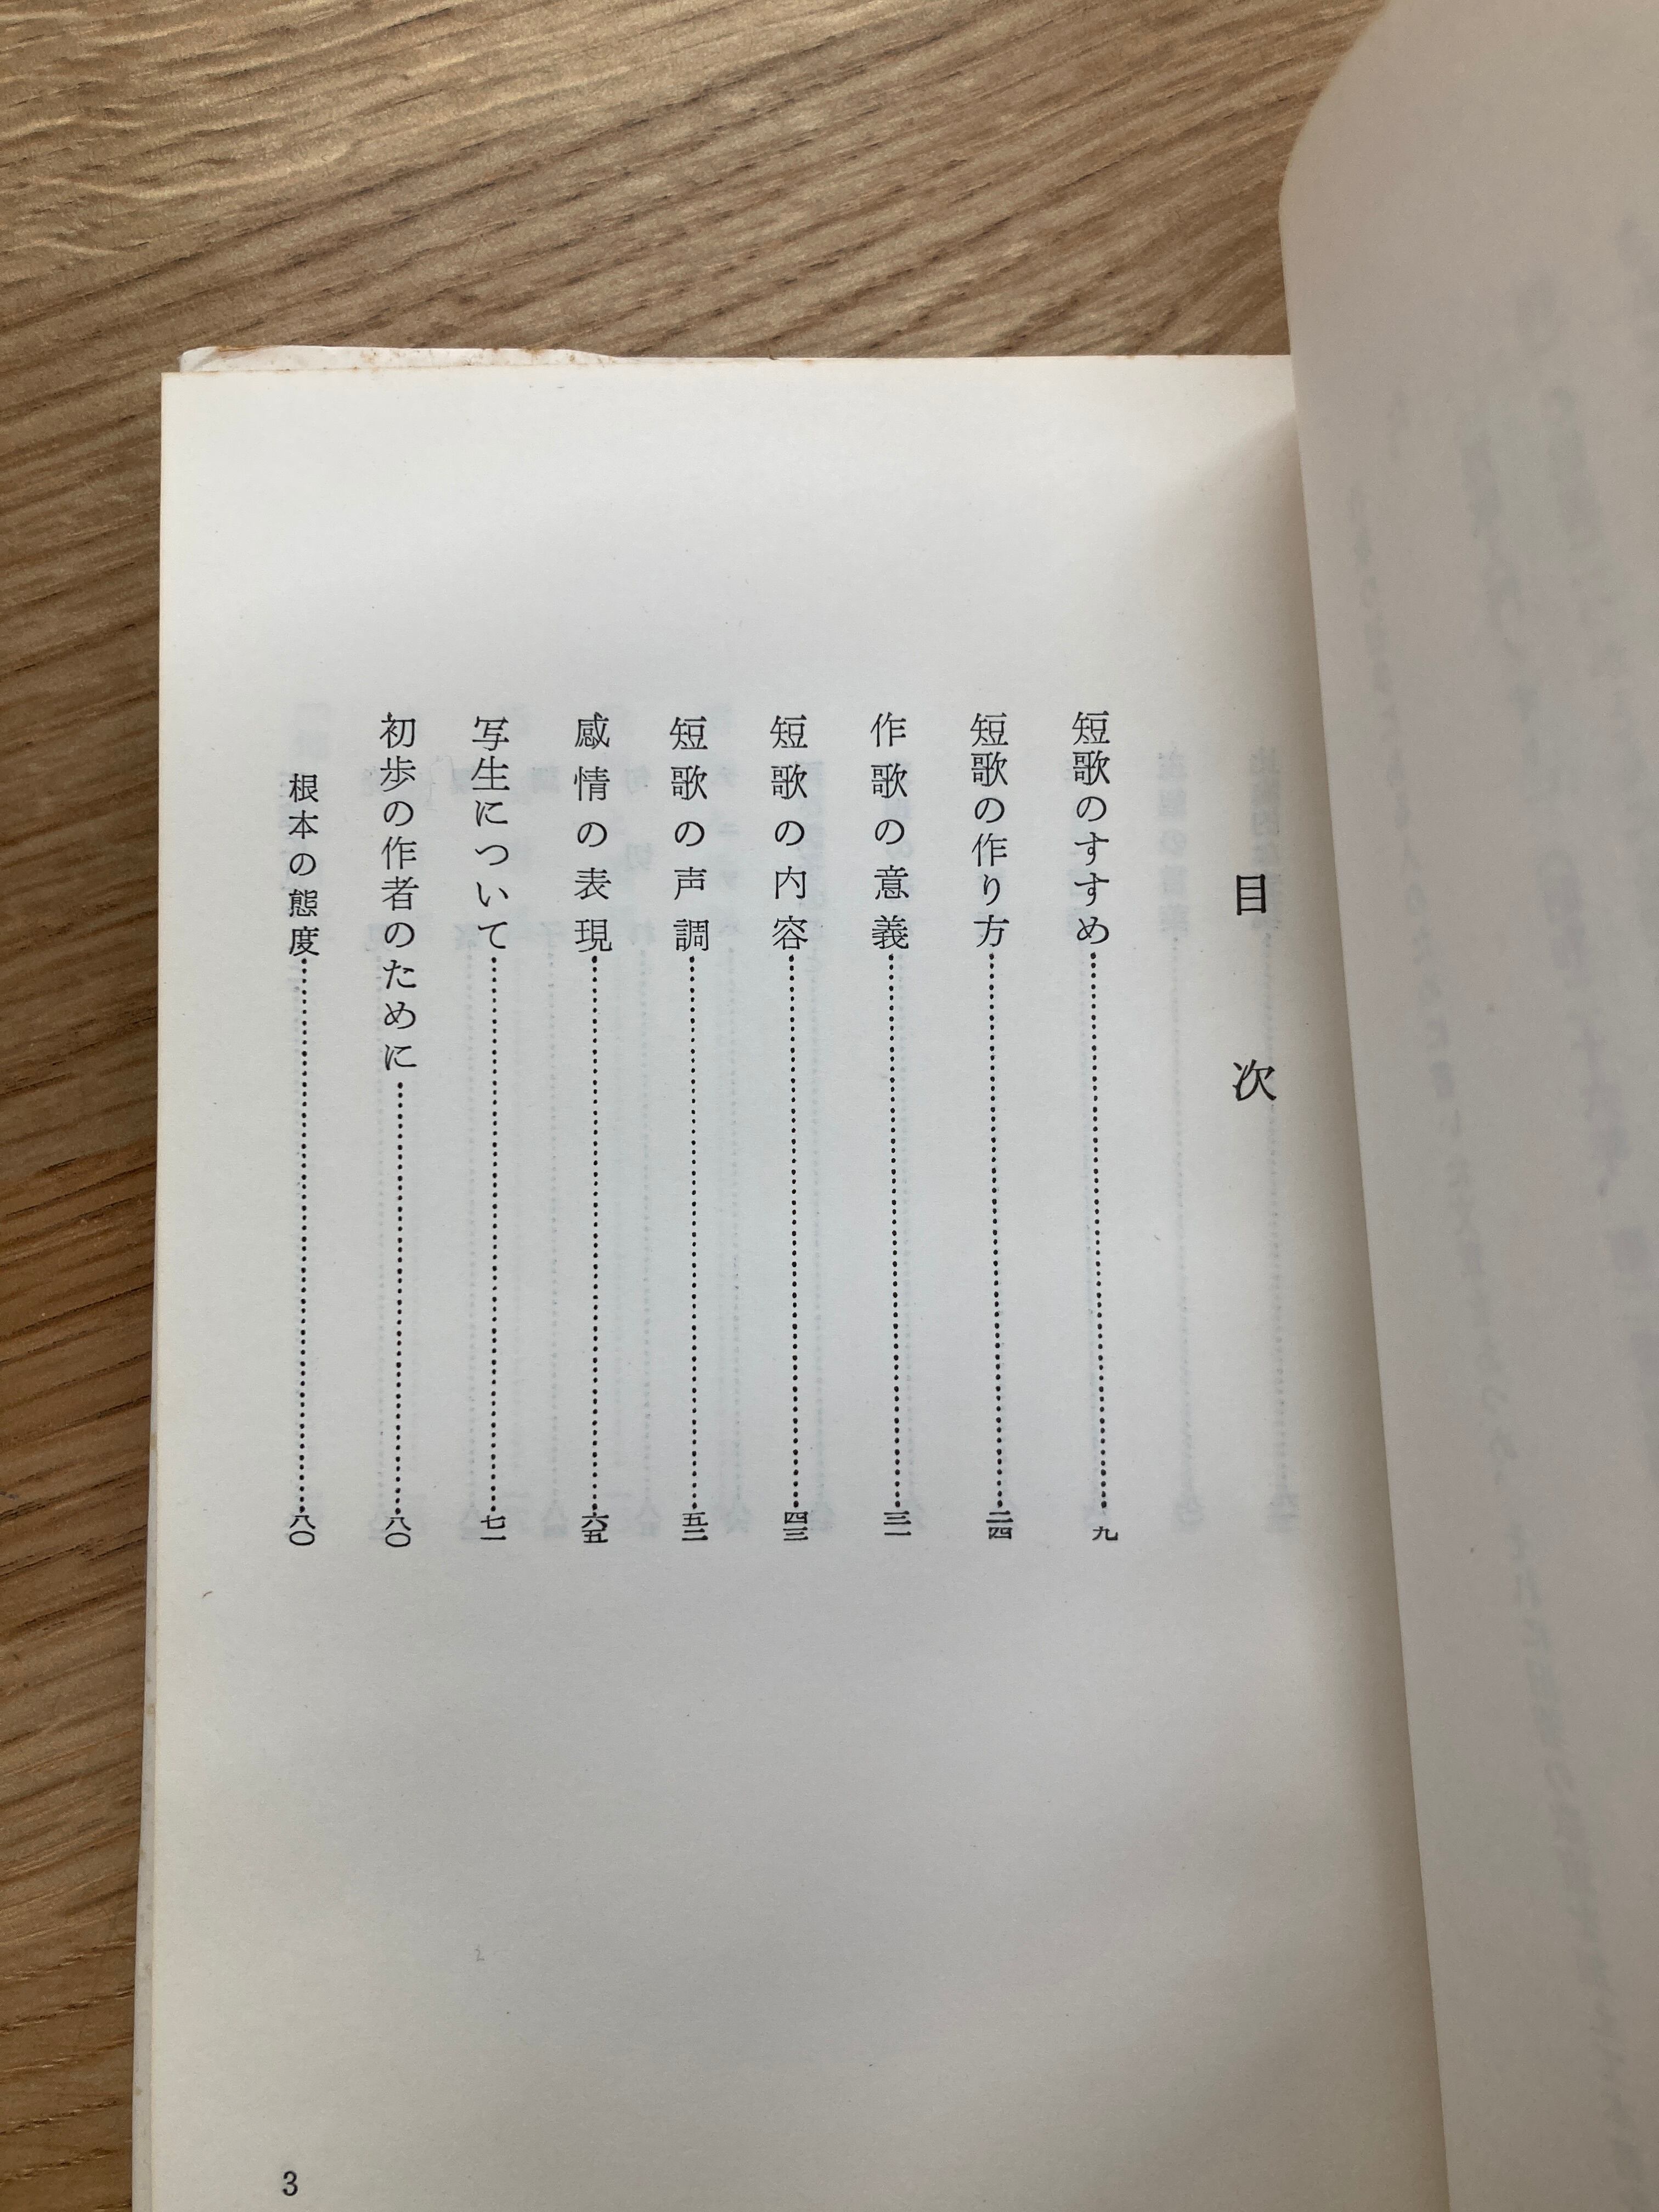 目次
短歌のすすめ……九
短歌の作り方……二四
作歌の意義……三一
短歌の内容……四三
短歌の声調……五二
感情の表現……六五
写生について……七一
初歩の作者のために……八〇
根本の態度……八〇
3